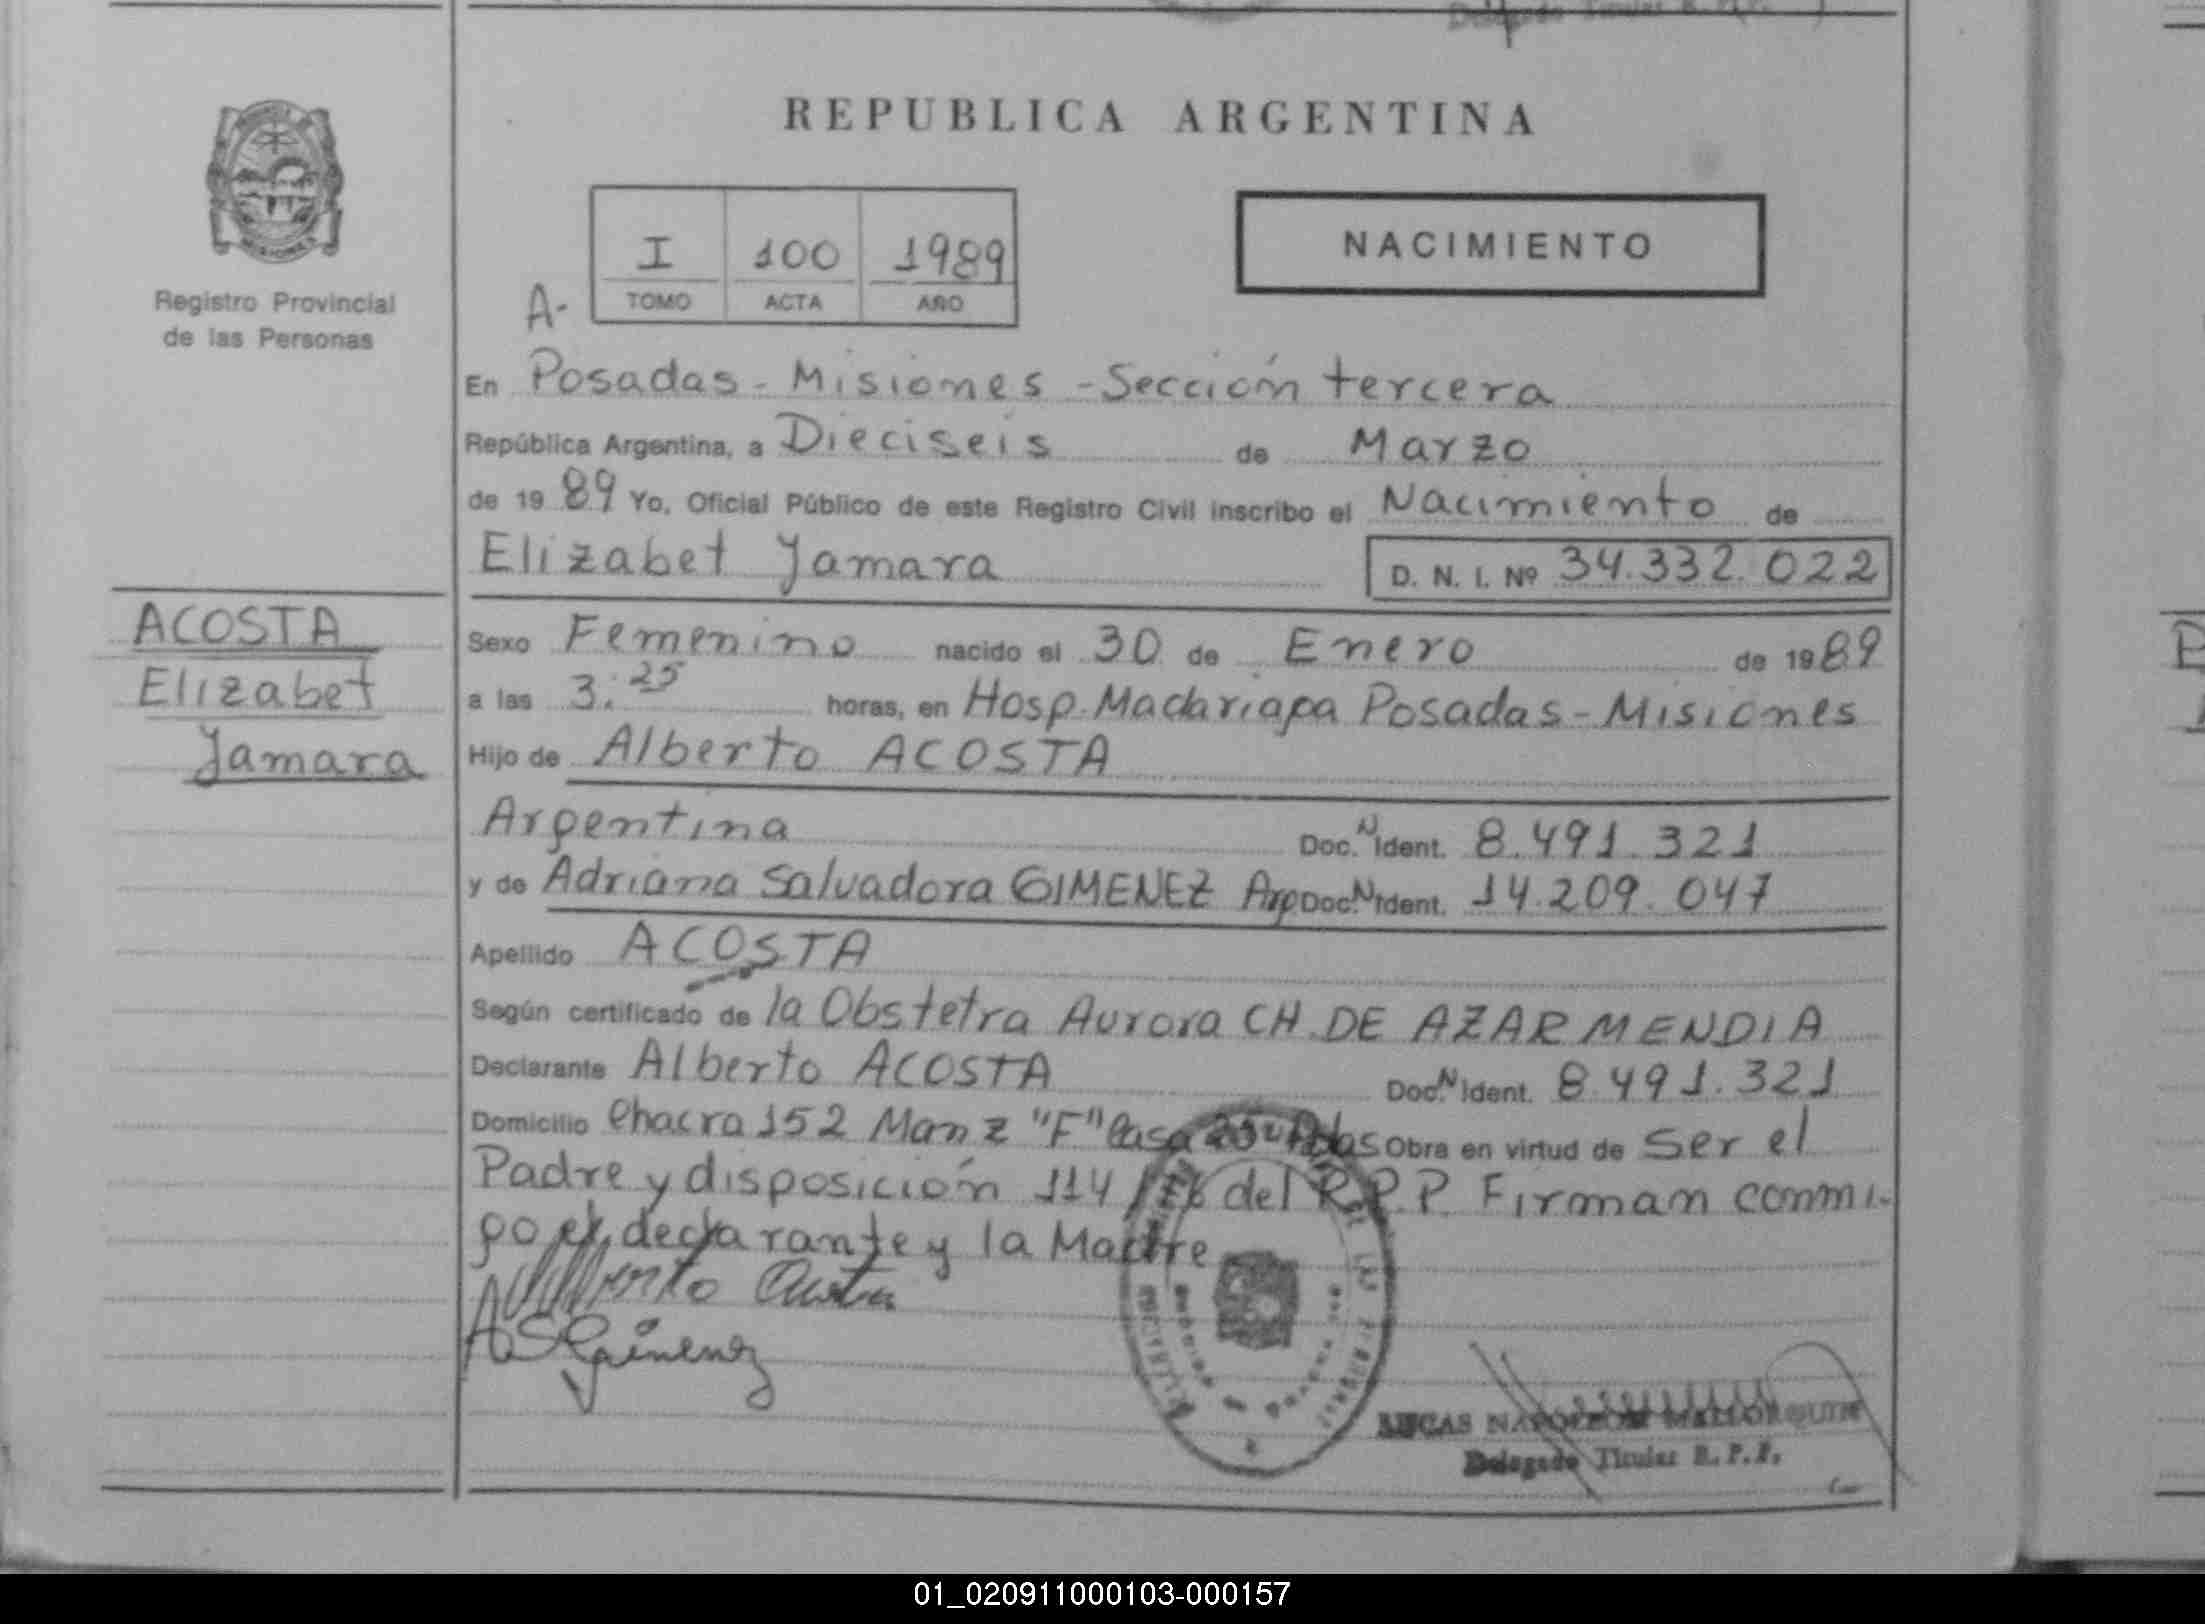 REPUBLICA ARGENTINA
Registro Provincial
de las Personas
A-
I 100 1989
TOMO ACTA AÑO
NACIMIENTO
En Posadas - Misiones - Sección tercera
República Argentina, a Dieciseis de Marzo
de 1989 Yo, Oficial Público de este Registro Civil inscribo el Nacimiento de
Elizabet Yamara D. N. I. Nº 34.332.022
ACOSTA
Elizabet
Yamara
Sexo Femenino nacido el 30 de Enero de 1989
a las 3:25 horas, en Hosp. Madariaga Posadas - Misiones
Hijo de Alberto ACOSTA
Argentina Doc. N Ident. 8.491.321
y de Adriana Salvadora GIMENEZ Arg Doc. N Ident. 14.209.047
Apellido ACOSTA
Según certificado de la Obstetra Aurora CH. DE AZARMENDIA
Declarante Alberto ACOSTA Doc. N Ident. 8.491.321
Domicilio Chacra 152 Manz "F" Casa Obra en virtud de Ser el
Padre y disposición 114 del R.P.P. Firman conmi-
go el declarante y la Madre
Alberto Acosta
A S Gimenez
LUCAS NAPOLEON MALLORQUIN
Delegado Titular R. P. P.
01_020911000103-000157